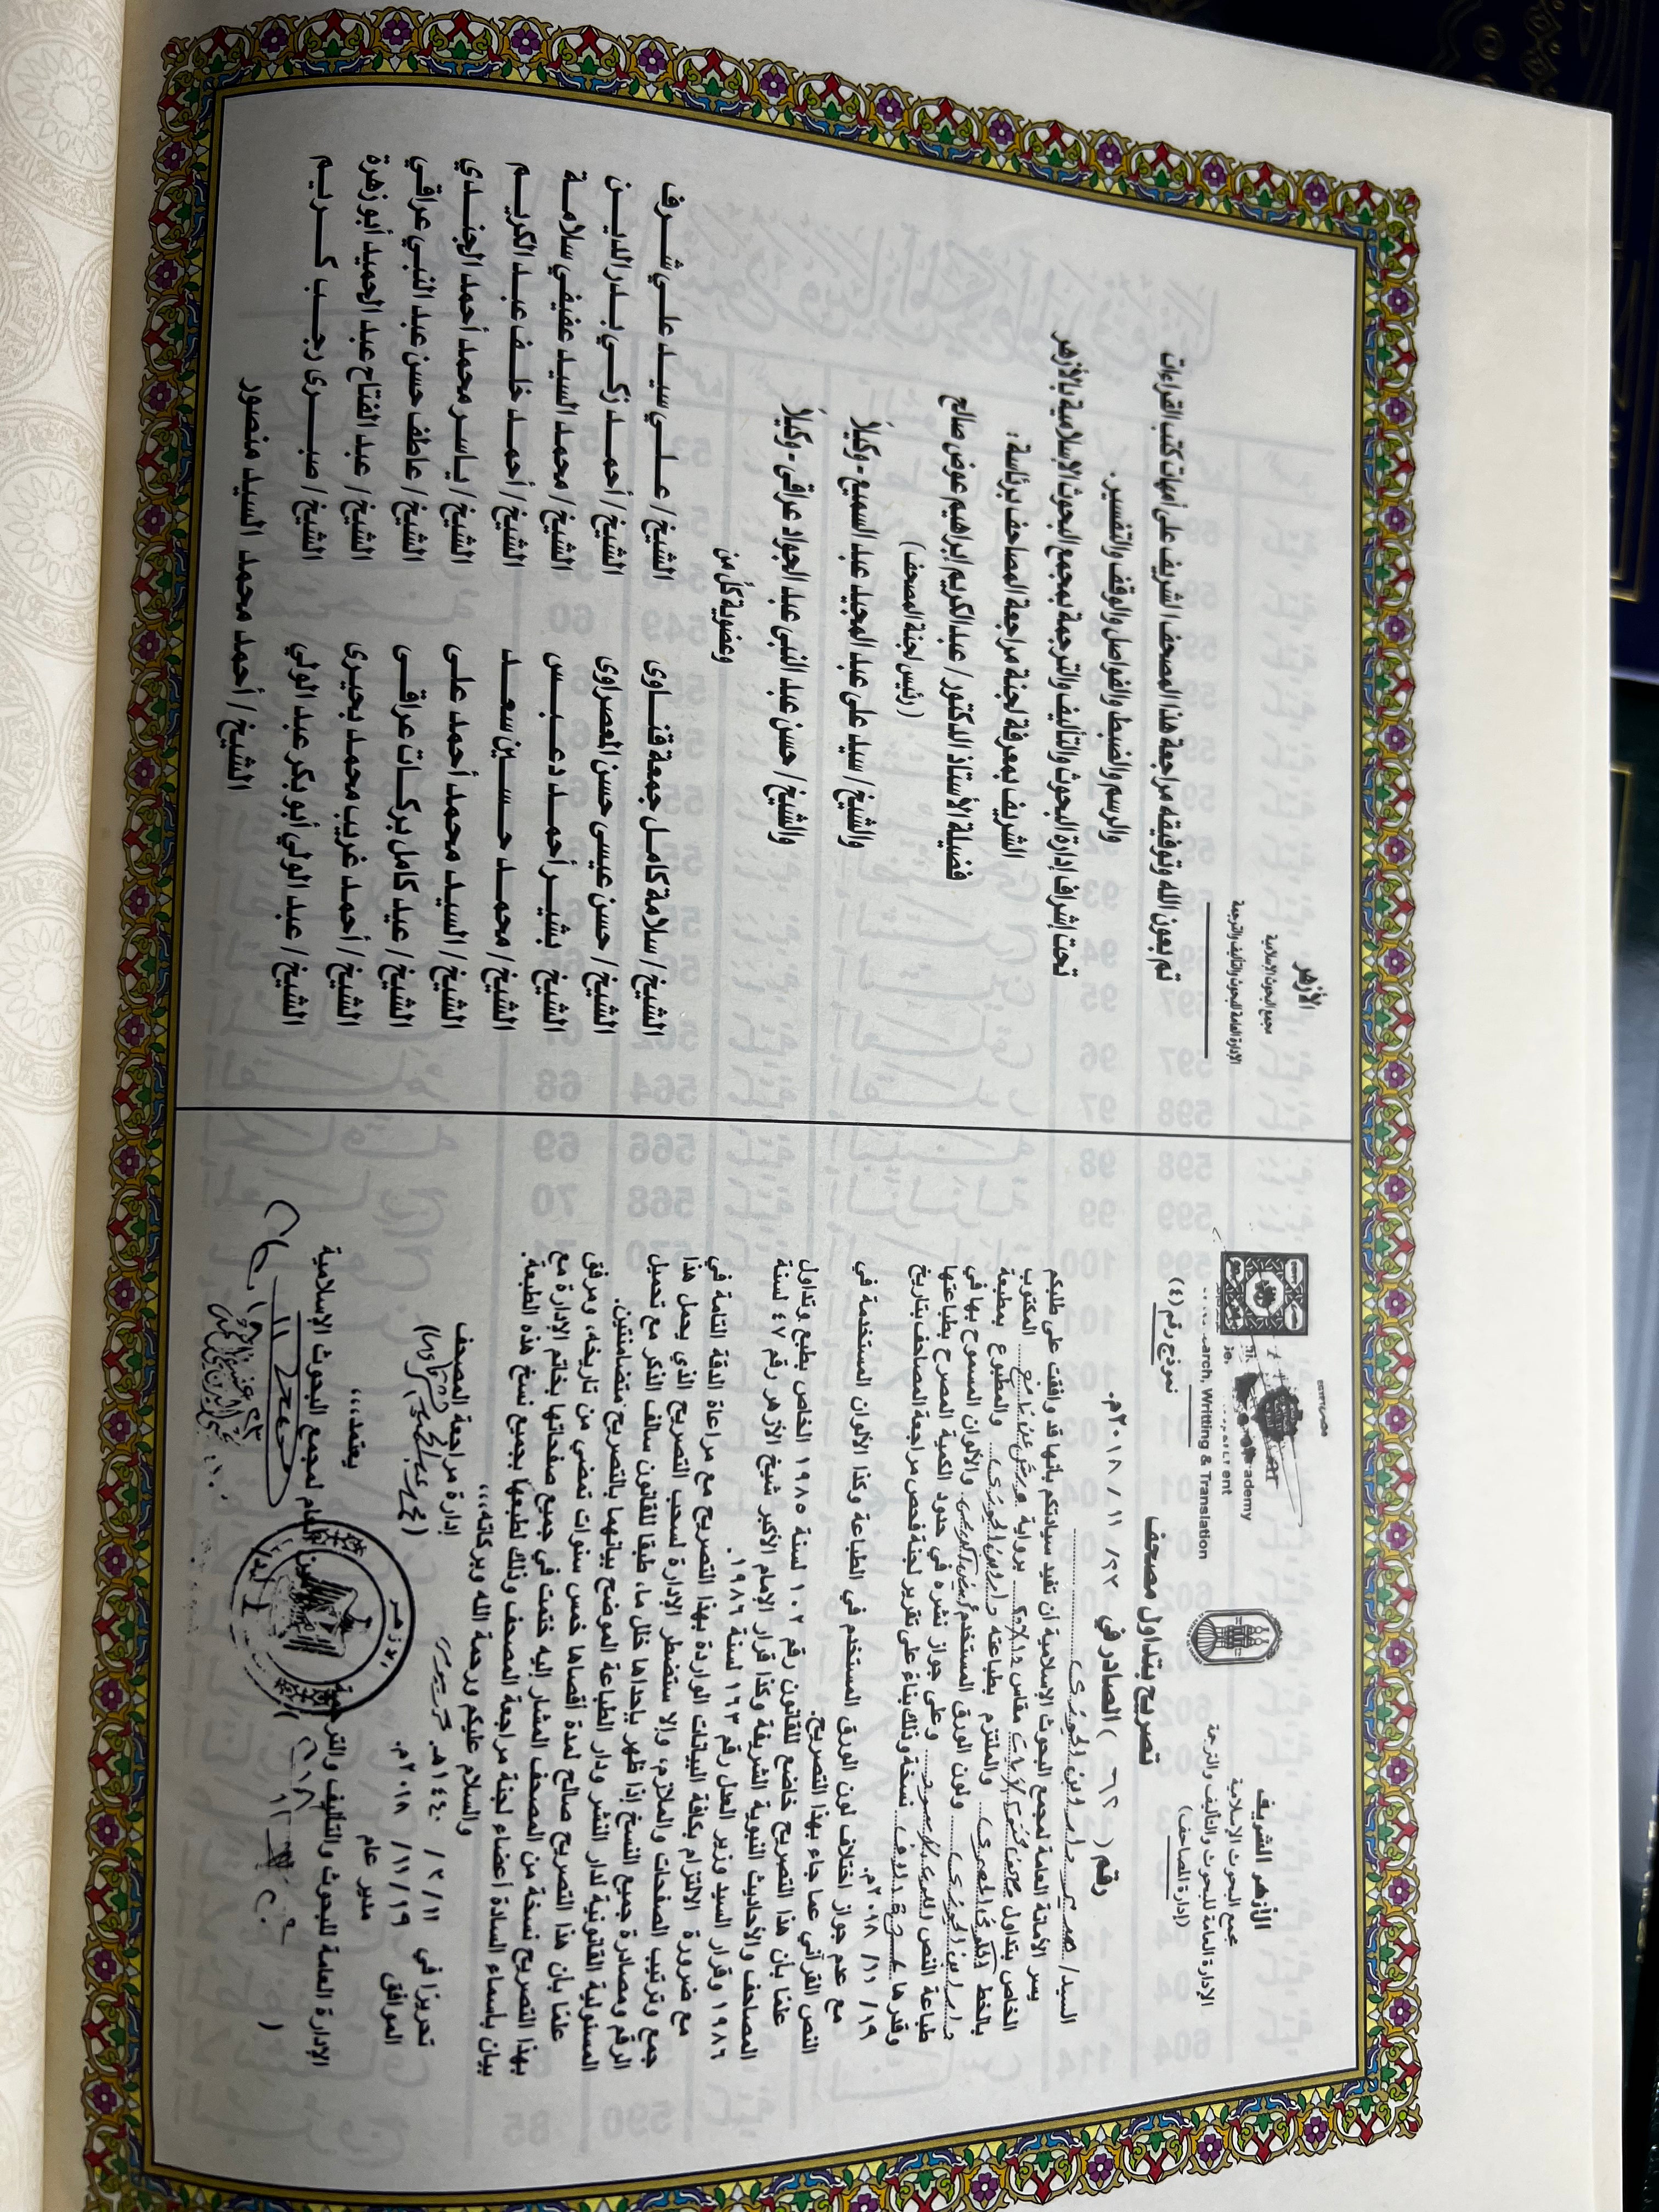 الأزهر
مجمع البحوث الإسلامية
الإدارة العامة للبحوث والتأليف والترجمة
تم بعون الله وتوفيقه مراجعة هذا المصحف الشريف على أمهات كتب القراءات
والرسم والضبط والفواصل والوقف والتفسير.
تحت إشراف إدارة البحوث والتأليف والترجمة بمجمع البحوث الإسلامية بالأزهر
الشريف بمعرفة لجنة مراجعة المصاحف برئاسة:
فضيلة الأستاذ الدكتور/ عبد الكريم إبراهيم عوض صالح
(رئيس لجنة المصحف)
والشيخ/ سيد على عبد المجيد عبد السميع - وكيلاً
والشيخ/ حسن عبد النبى عبد الجواد عراقى - وكيلاً
وعضوية كل من
الشيخ/ سلامة كامل جمعة قناوى
الشيخ/ علي سيد علي شرف
الشيخ/ حسن عيسى حسن المعصراوى
الشيخ/ أحمد زكي بدر الدين
الشيخ/ بشير أحمد دعبس
الشيخ/ محمد السيد عفيفي سلامة
الشيخ/ محمد حسين سعد
الشيخ/ أحمد خلف عبد الكريم
الشيخ/ السيد محمد أحمد على
الشيخ/ ياسر محمد أحمد الجندي
الشيخ/ عيد كامل بركات عراقى
الشيخ/ عاطف حسن عبد النبي عراقي
الشيخ/ أحمد غريب محمد بحيرى
الشيخ/ عبد الفتاح عبد الحميد أبوزهرة
الشيخ/ عبد الولي أبو بكر عبد الولي
الشيخ/ صبرى رجب كريم
الشيخ/ أحمد محمد السيد منصور
الأزهر الشريف
مجمع البحوث الإسلامية
الإدارة العامة للبحوث والتأليف والترجمة
(إدارة المصاحف)
Writting & Translation
نموذج رقم (٤)
تصريح بتداول مصحف
رقم ( ٦٢ ) الصادر في ٢٢ / ١١ / ٢٠١٨م.
السيد/ دار ابن الجوزى
يسر الأمانة العامة لمجمع البحوث الإسلامية أن تفيد سيادتكم بأنها قد وافقت على طلبكم
الخاص بتداول مقاس برواية المكتوب
بالخط والملتزم بطباعته دار ابن الجوزى والمطبوع بمطبعة
دار ابن الجوزى ولون الورق المستخدم والألوان المسموح بها في
طباعة النص وعلى جواز نشره في حدود الكمية المصرح بطباعتها
وقدرها نسخة وذلك بناءً على تقرير لجنة فحص مراجعة المصاحف بتاريخ
١٩ / ١١ / ٢٠١٨م.
مع عدم جواز اختلاف لون الورق المستخدم في الطباعة وكذا الألوان المستخدمة في
النص القرآني عما جاء بهذا التصريح.
علمًا بأن هذا التصريح خاضع للقانون رقم ١٠٢ لسنة ١٩٨٥ الخاص بطبع وتداول
المصاحف والأحاديث النبوية الشريفة وكذا قرار الإمام الأكبر شيخ الأزهر رقم ٤٧ لسنة
١٩٨٦ وقرار السيد وزير العدل رقم ١٦٣ لسنة ١٩٨٦.
مع ضرورة الالتزام بكافة البيانات الواردة بهذا التصريح مع مراعاة الدقة التامة في
جمع وترتيب الصفحات والملازم، وإلا ستضطر الإدارة لسحب التصريح الذي يحمل هذا
الرقم ومصادرة جميع النسخ إذا ظهر بإحداها خلل ما، طبقا للقانون سالف الذكر مع تحميل
المسئولية القانونية لدار النشر ودار الطباعة الموضح بياتهما بالتصريح متضامنتين.
علمًا بأن هذا التصريح صالح لمدة أقصاها خمس سنوات تمضي من تاريخه، ومرفق
بهذا التصريح نسخة من المصحف المشار إليه ختمت في جميع صفحاتها بخاتم الإدارة مع
بيان بأسماء السادة أعضاء لجنة مراجعة المصحف وذلك لطبعها بجميع نسخ هذه الطبعة.
والسلام عليكم ورحمة الله وبركاته،،،،
تحريرًا في ١١ / ٣ / ١٤٤٠هـ
إدارة مراجعة المصحف
الموافق ١٩ / ١١ / ٢٠١٨م.
يعتمد،،،
مدير عام
الإدارة العامة للبحوث والتأليف والترجمة
العام لمجمع البحوث الإسلامية
الأزهر